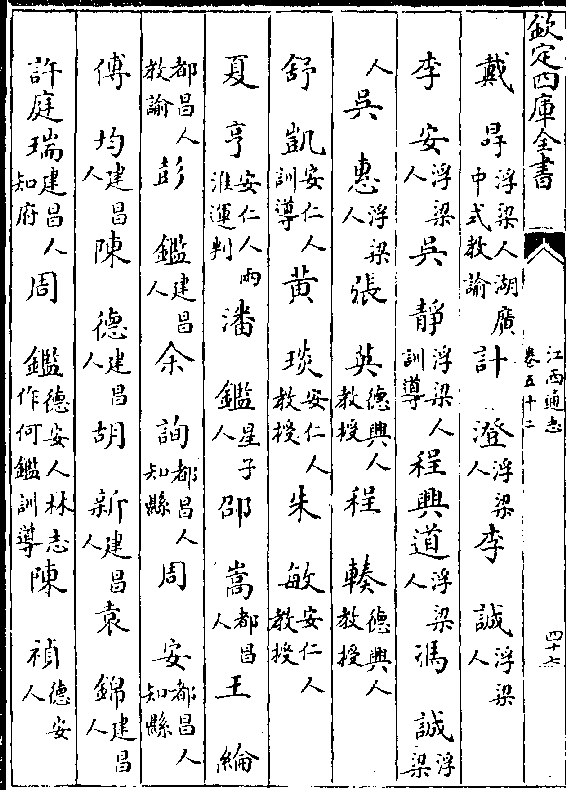 欽定四庫全書
江西通志
卷五十二
戴 浮梁人湖廣中式教諭 計澄浮梁人 李誠浮梁人
李安浮梁人 吳靜浮梁人訓導 程興道浮梁人 馮誠浮梁
人 吳惠浮梁人 張英德興人教授 程輳德興人教授
舒凱安仁人訓導 黃琰安仁人教授 朱敏安仁人教授
夏亨安仁人兩淮運判 潘鑑星子人 邵嵩都昌人 王綸
都昌人教諭 彭鑑建昌人 余詢都昌人知縣 周安都昌人知縣
傅均建昌人 陳德建昌人 胡新建昌人 袁錦建昌人
許庭瑞建昌人知府 周鑑德安人林志作何鑑訓導 陳禎德安人